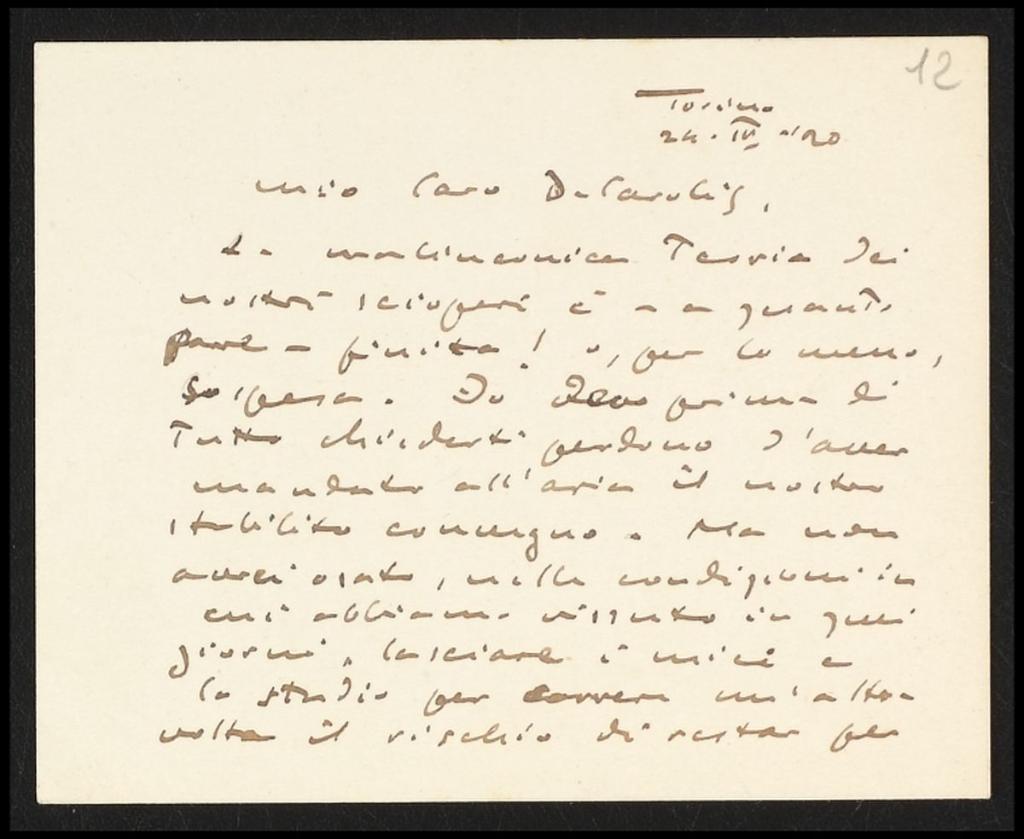 12
Torino
24 · IV · 920
mio Caro DeCarolis,
La malinconica Teoria dei
nostri scioperi è – a quanto
pare – finita! o, per lo meno,
Sospesa. Io devo prima di
Tutto chiederti perdono d'aver
mandato all'aria il nostro
stabilito convegno. Ma non
avrei osato, nelle condizioni in
cui abbiamo vissuto in quei
giorni, lasciare i miei e
lo studio per correre un'altra
volta il rischio di restar per